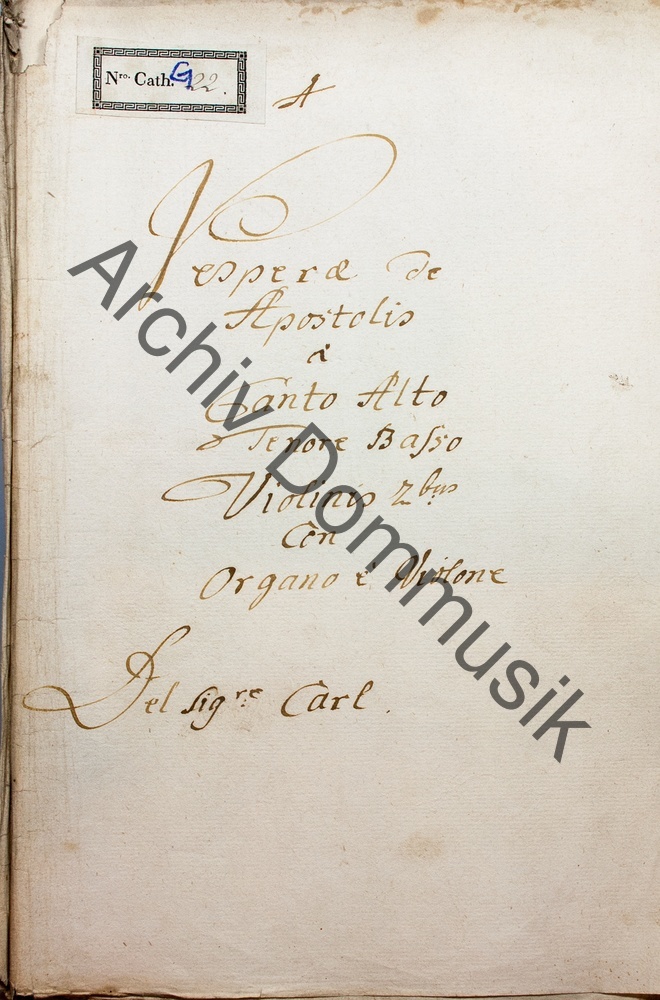 Nro. Cath. G 22.
A
Vesperæ de
Apostolis
à
Canto Alto
Tenore Basso
Violinis 2bus
Con
Organo è Violone
Del Sigre Carl.
Archiv Dommusik